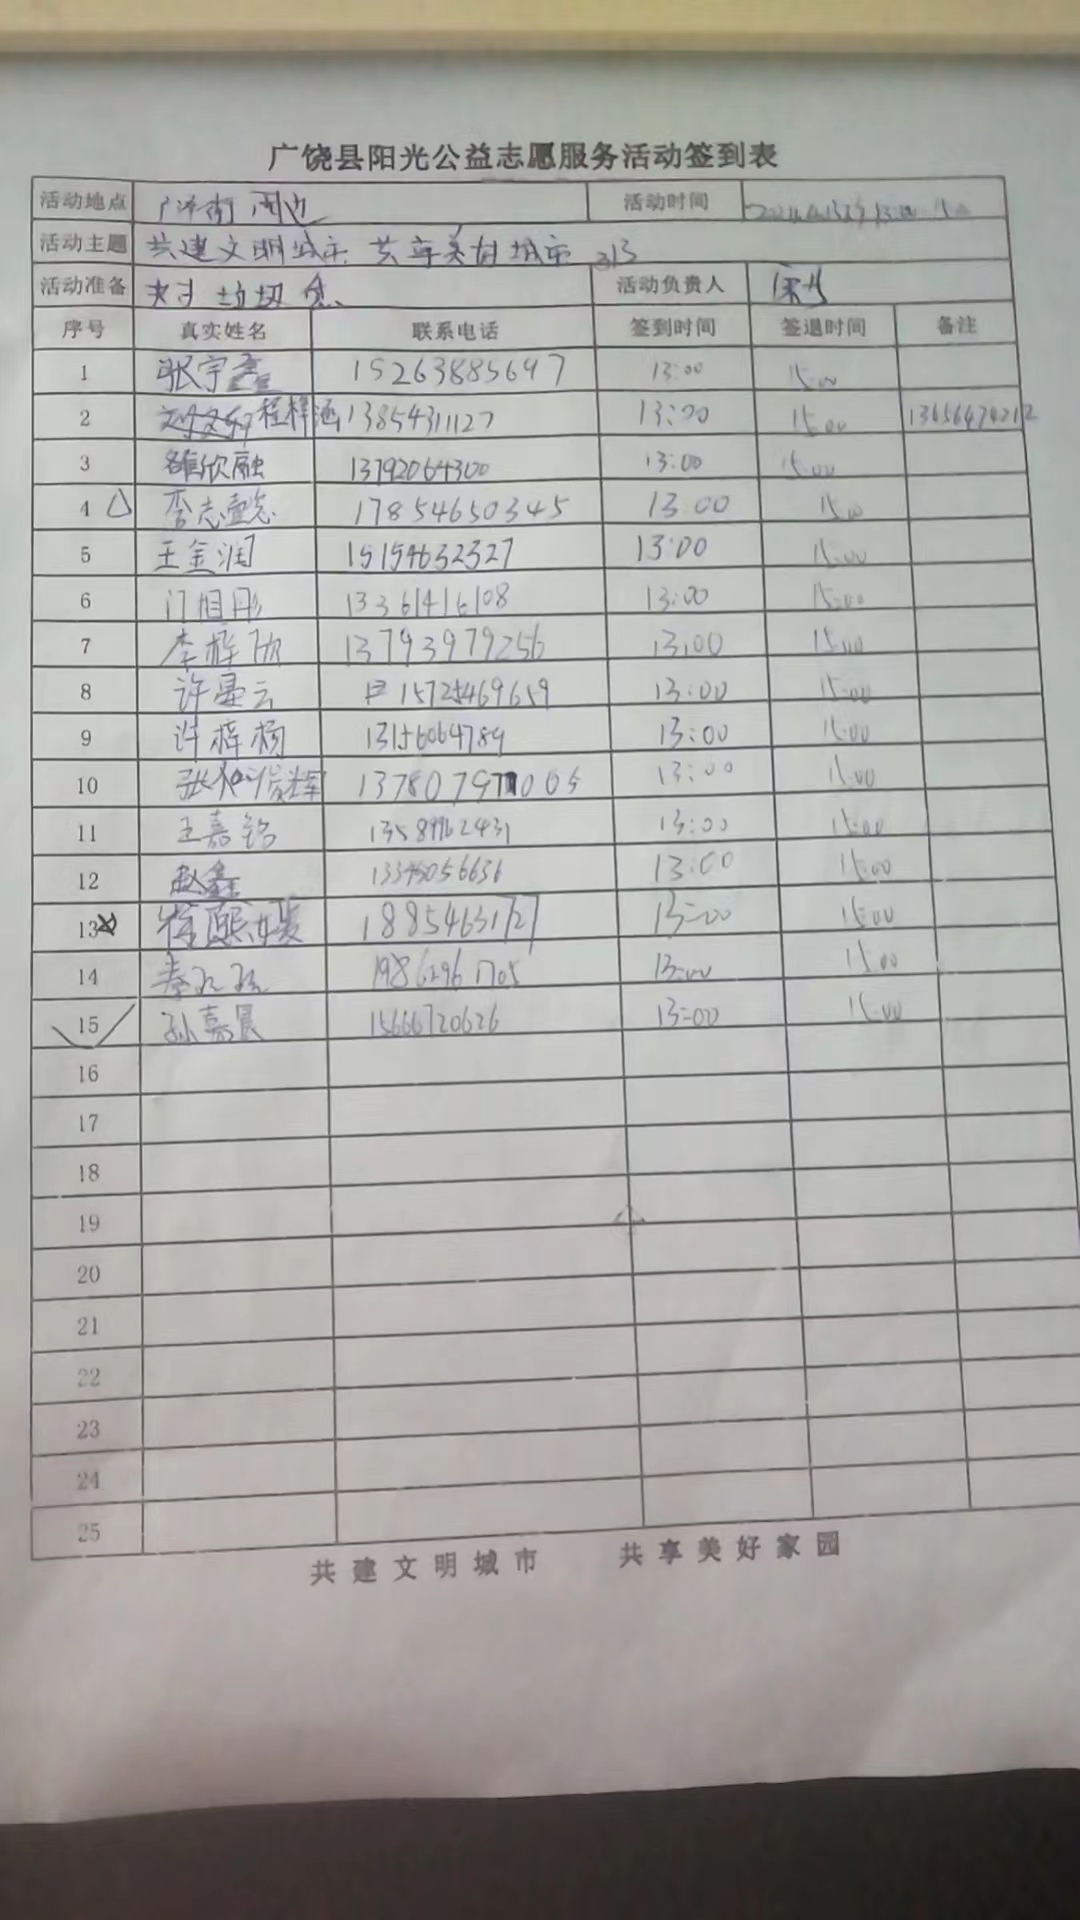 广饶县阳光公益志愿服务活动签到表
活动地点 周边 活动时间
活动主题 共建文明城市 共享美好城市 313
活动准备 夹子 垃圾 活动负责人
序号 真实姓名 联系电话 签到时间 签退时间 备注
1 张宇鑫 15263885697 13:00 15:00
2 程梓涵 13854311127 13:00 15:00
3 欣融 13792064300 13:00 15:00
4 李志懿 17854650345 13:00 15:00
5 王金润 15154632327 13:00 15:00
6 门恒彤 13361416108 13:00 15:00
7 李梓欣 13793979256 13:00 15:00
8 许晏云 15725469659 13:00 15:00
9 许梓杨 13156064789 13:00 15:00
10 13:00 15:00
11 王嘉铭 13589962431 13:00 15:00
12 赵鑫 13:00 15:00
13 徐熙媛 18854631727 13:00 15:00
14 秦 19862961705 13:00 15:00
15 孙嘉晨 15666720626 13:00 15:00
16
17
18
19
20
21
22
23
24
25
共建文明城市 共享美好家园